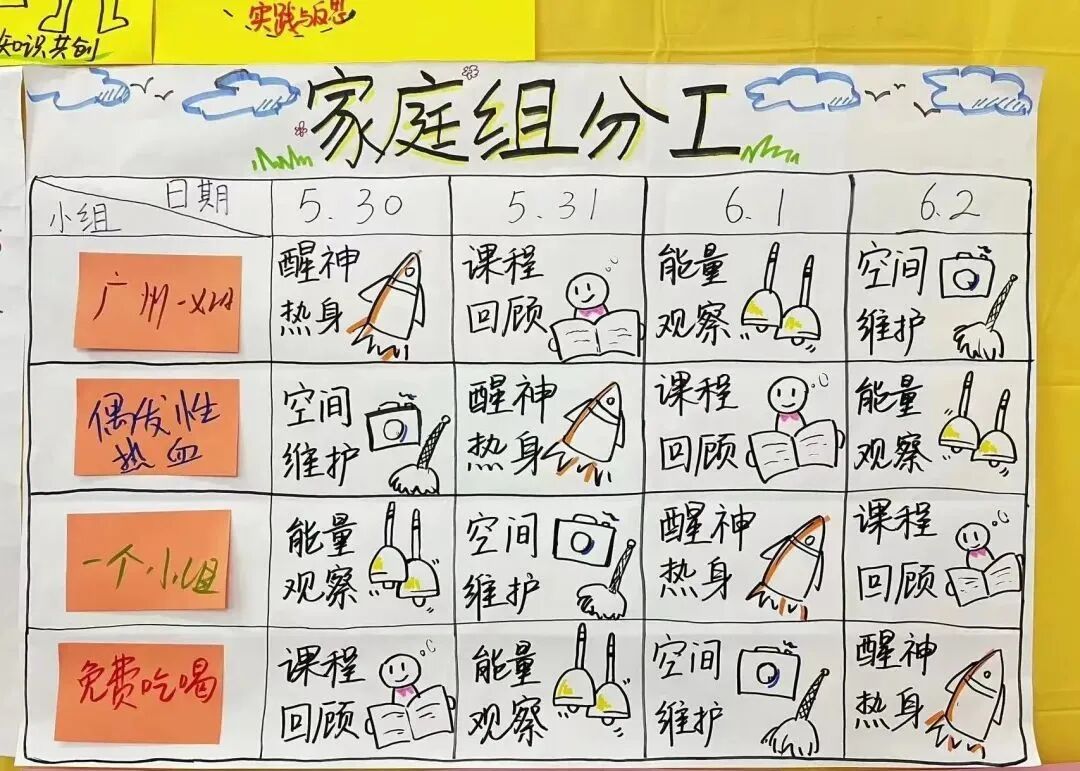 知识共创
实践与反思
家庭组分工
日期
小组
5.30
5.31
6.1
6.2
广州一
醒神
热身
课程
回顾
能量
观察
空间
维护
偶发性
热血
空间
维护
醒神
热身
课程
回顾
能量
观察
一个小组
能量
观察
空间
维护
醒神
热身
课程
回顾
免费吃喝
课程
回顾
能量
观察
空间
维护
醒神
热身